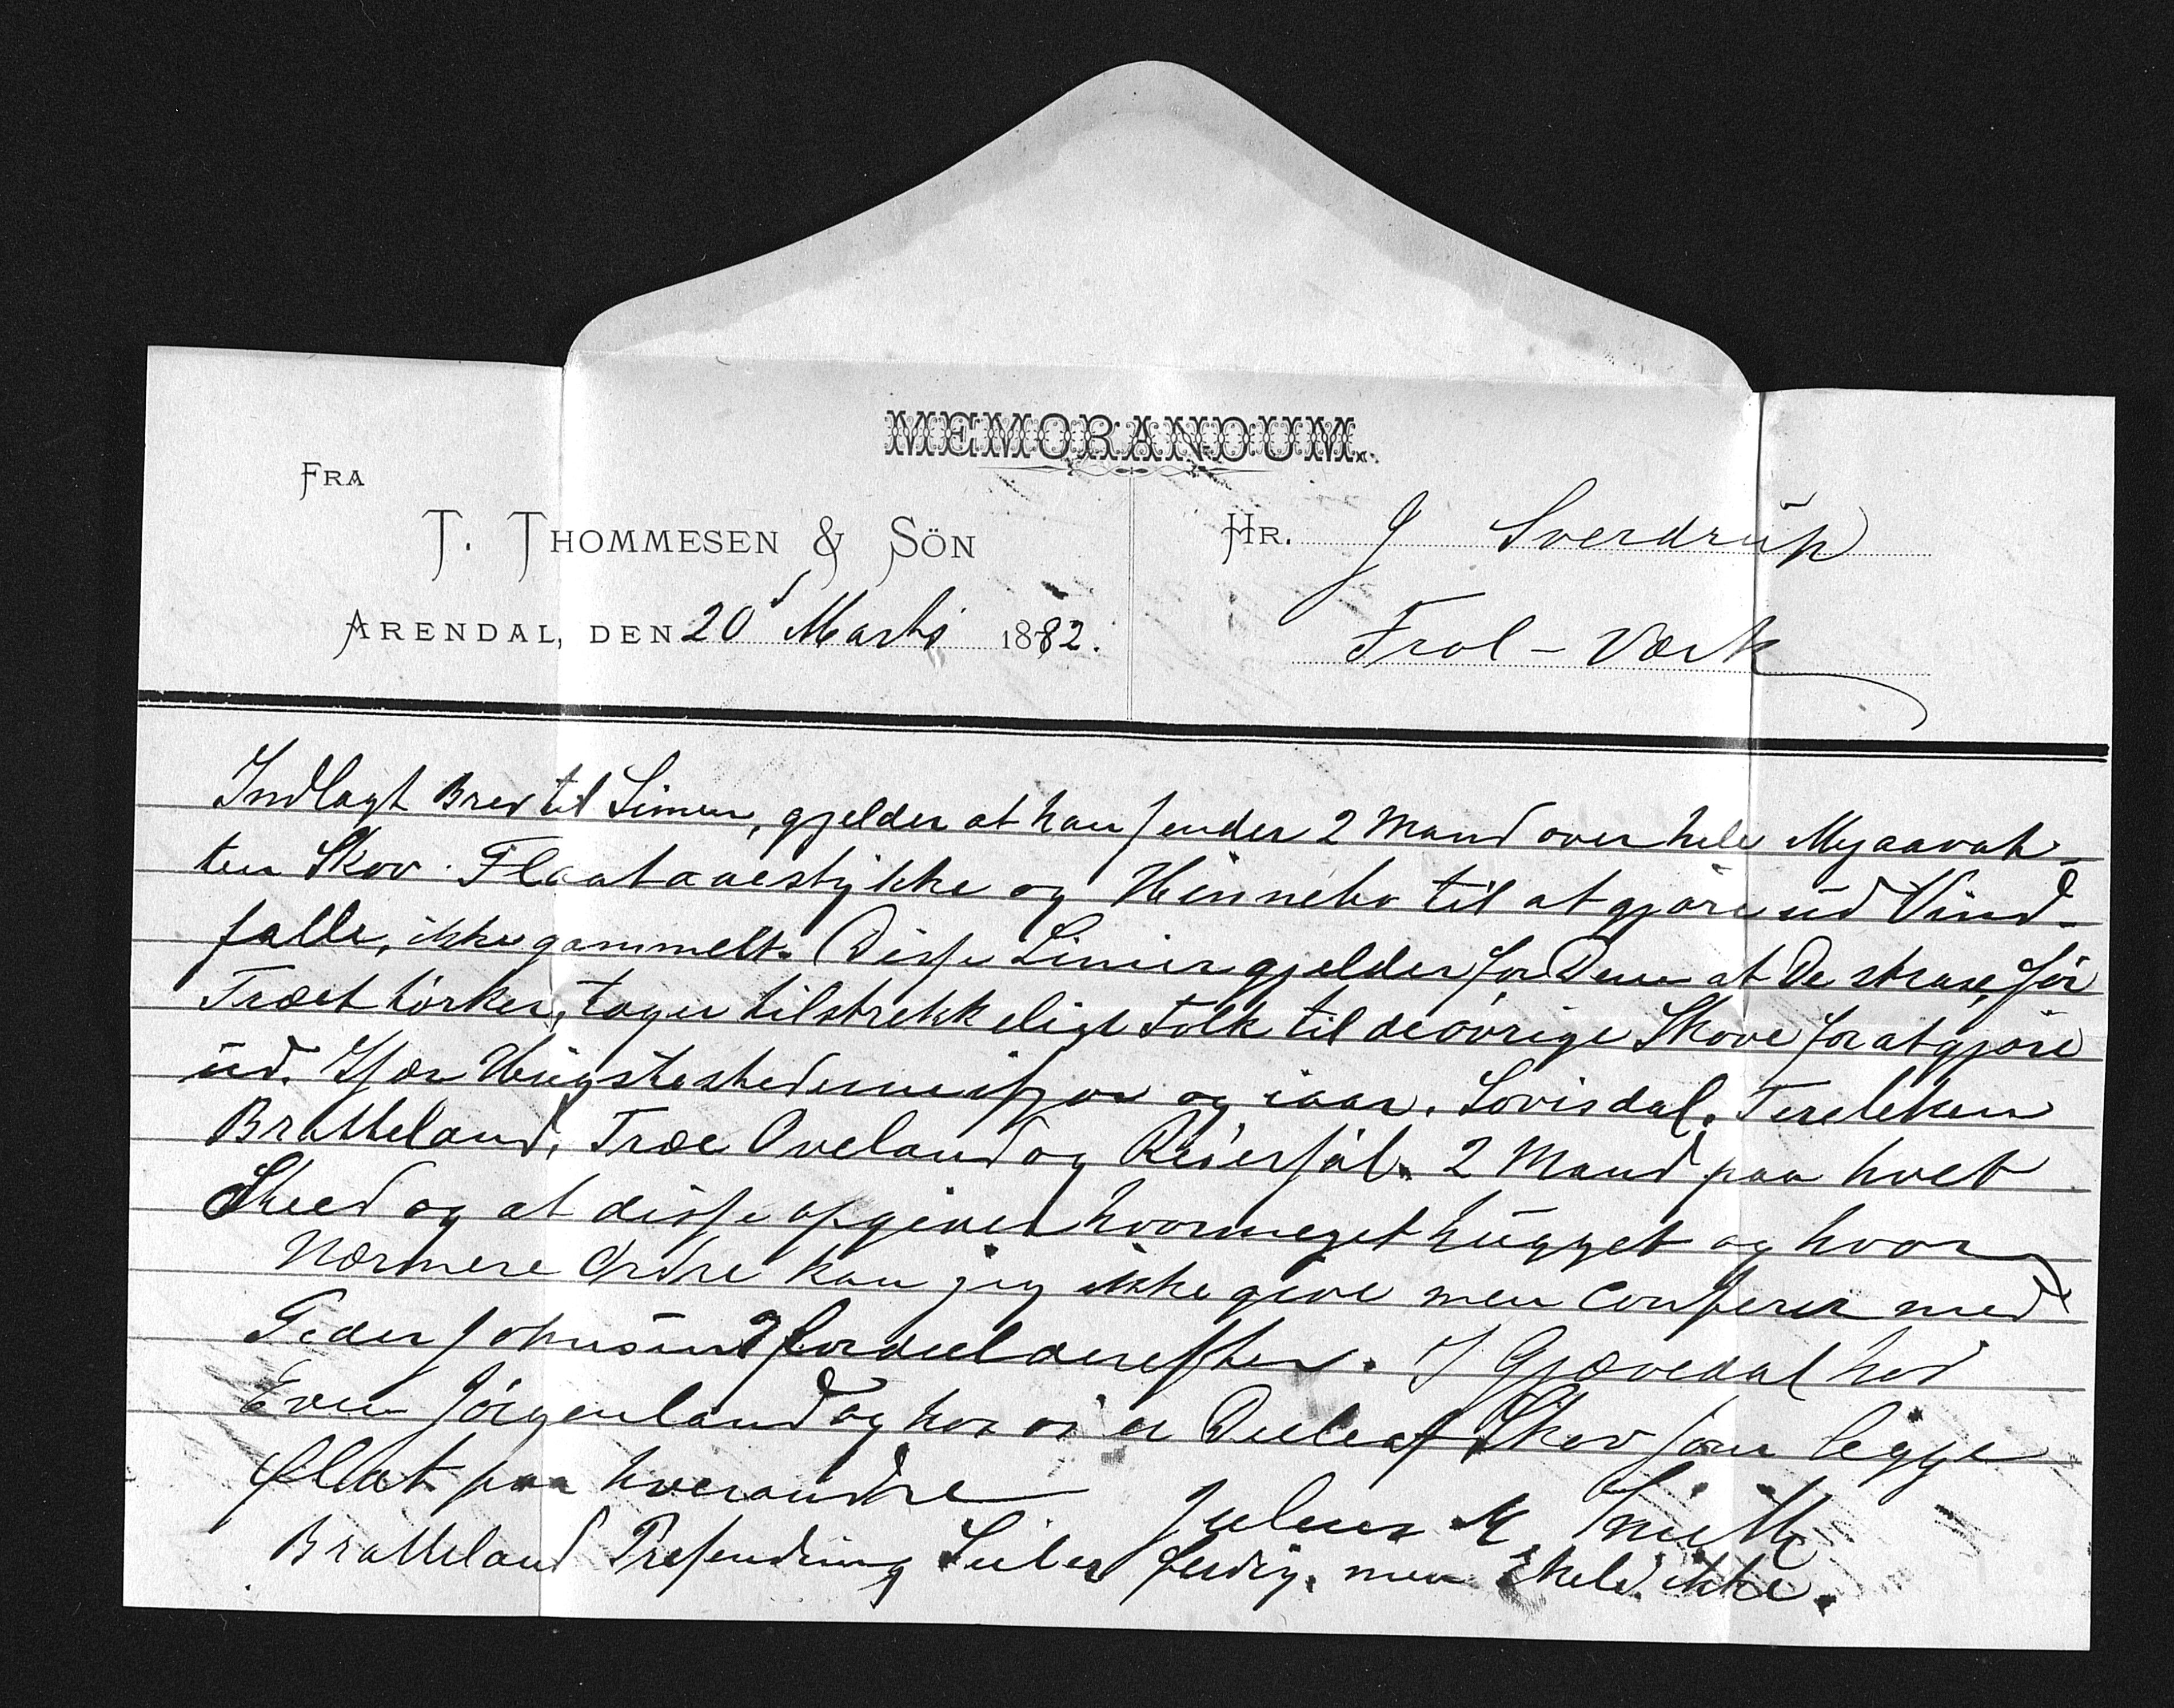 MEMORANDUM.
FRA
T. THOMMESEN & SÖN
ARENDAL, DEN 20d Marts 1882.
HR. J Sverdrüp
Frol-Værk
Indlagt Brev til Simen, gjelder at han sender 2 Mand over hele Myaavat-
ten Skov. Flaataaestykke og Hinnebo til at gjøre ud Vind-
falle, ikke gammelt. Disse Linier gjelder for Dem at De strax, før
Træet tørker, tager tilstrekkeligt Folk til de øvrige Skove for at gjøre
ud. Især Hugstestederne ifjor og iaar. Lovisdal,
Bratteland, Træe Oveland og 2 Mand paa hvet
Sted og at disse opgiver hvormeget hugget og hvor
Nærmere Ordre kan jeg ikke give men Conferer med
Peder Johnsen derefter. I Gjøvedal hos
Even Jörgenland og hos os er Deele af Skov som legge
flat paa hverandre
Julius M, Smith
Bratteland ferdig, men ikke.